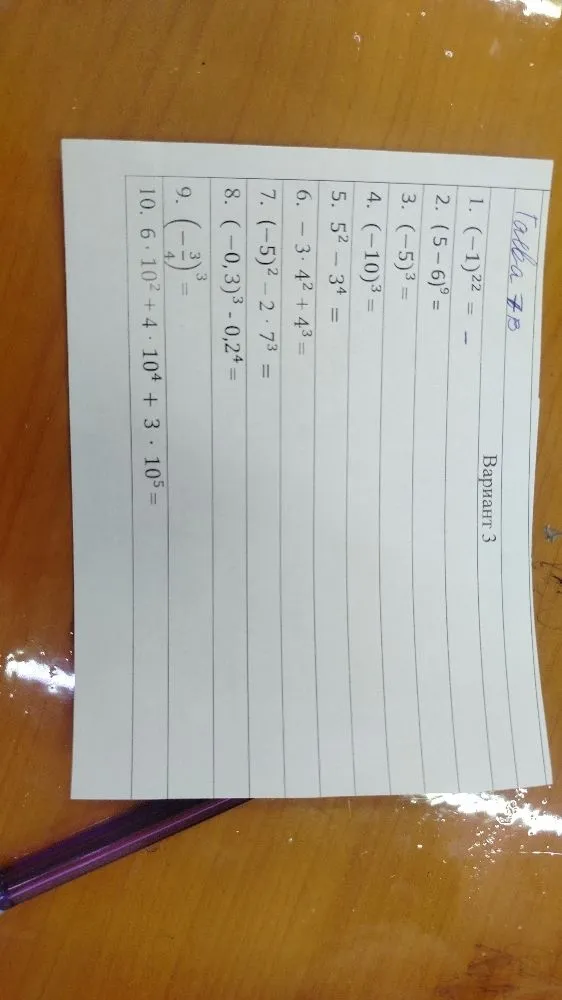 Галка 7В
Вариант 3
1. (−1)²² = −
2. (5 − 6)⁹ =
3. (−5)³ =
4. (−10)³ =
5. 5² − 3⁴ =
6. − 3· 4² + 4³ =
7. (−5)² − 2 · 7³ =
8. (−0,3)³ - 0,2⁴ =
9. (−3/4)³ =
10. 6 · 10² + 4 · 10⁴ + 3 · 10⁵ =